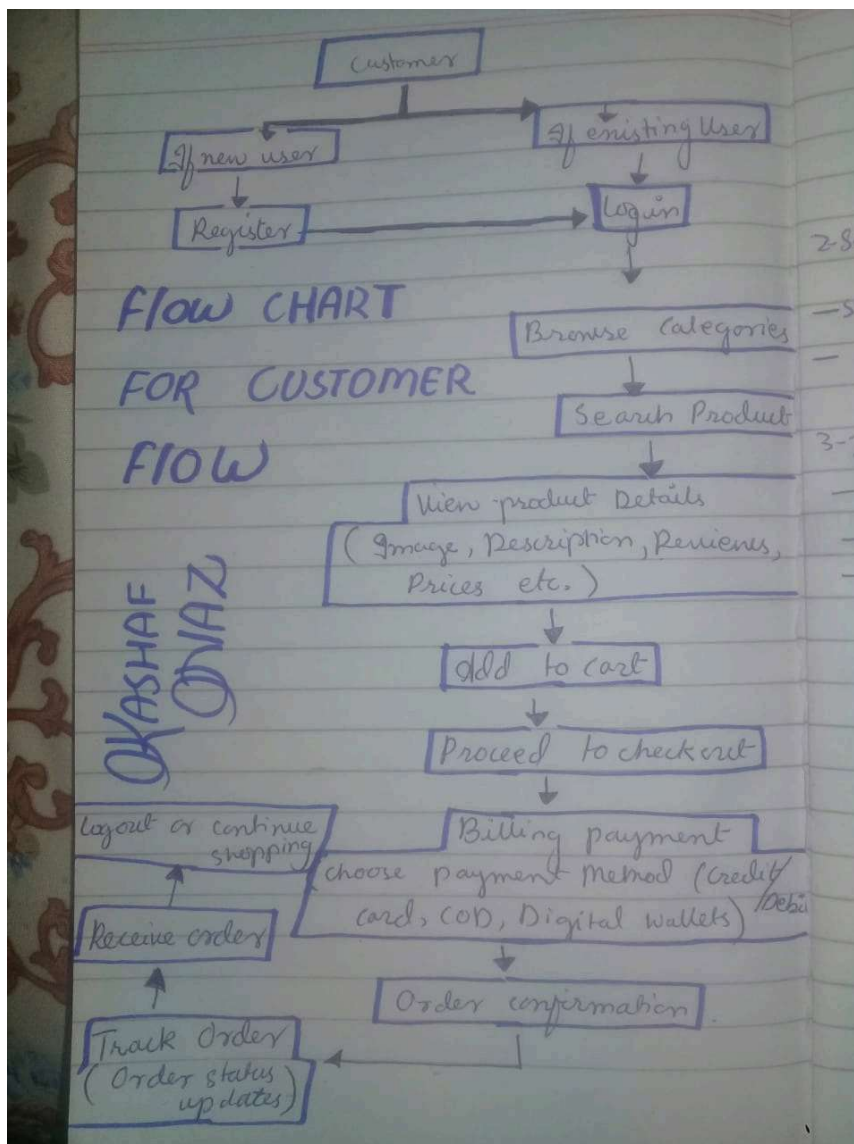 Customer
If new user
If existing User
Register
Login
FlOW CHART
FOR CUSTOMER
FlOW
Browse Categories
Search Product
View product Details
(Image, Description, Reviews,
Prices etc.)
KASHAF
NAZ
Add to cart
Proceed to checkout
Billing payment
(choose payment Method (Credit/
Debi
card, COD, Digital wallets)
Order confirmation
Track Order
(Order status
updates)
Receive order
Logout or continue
shopping
2-S
-S
3-